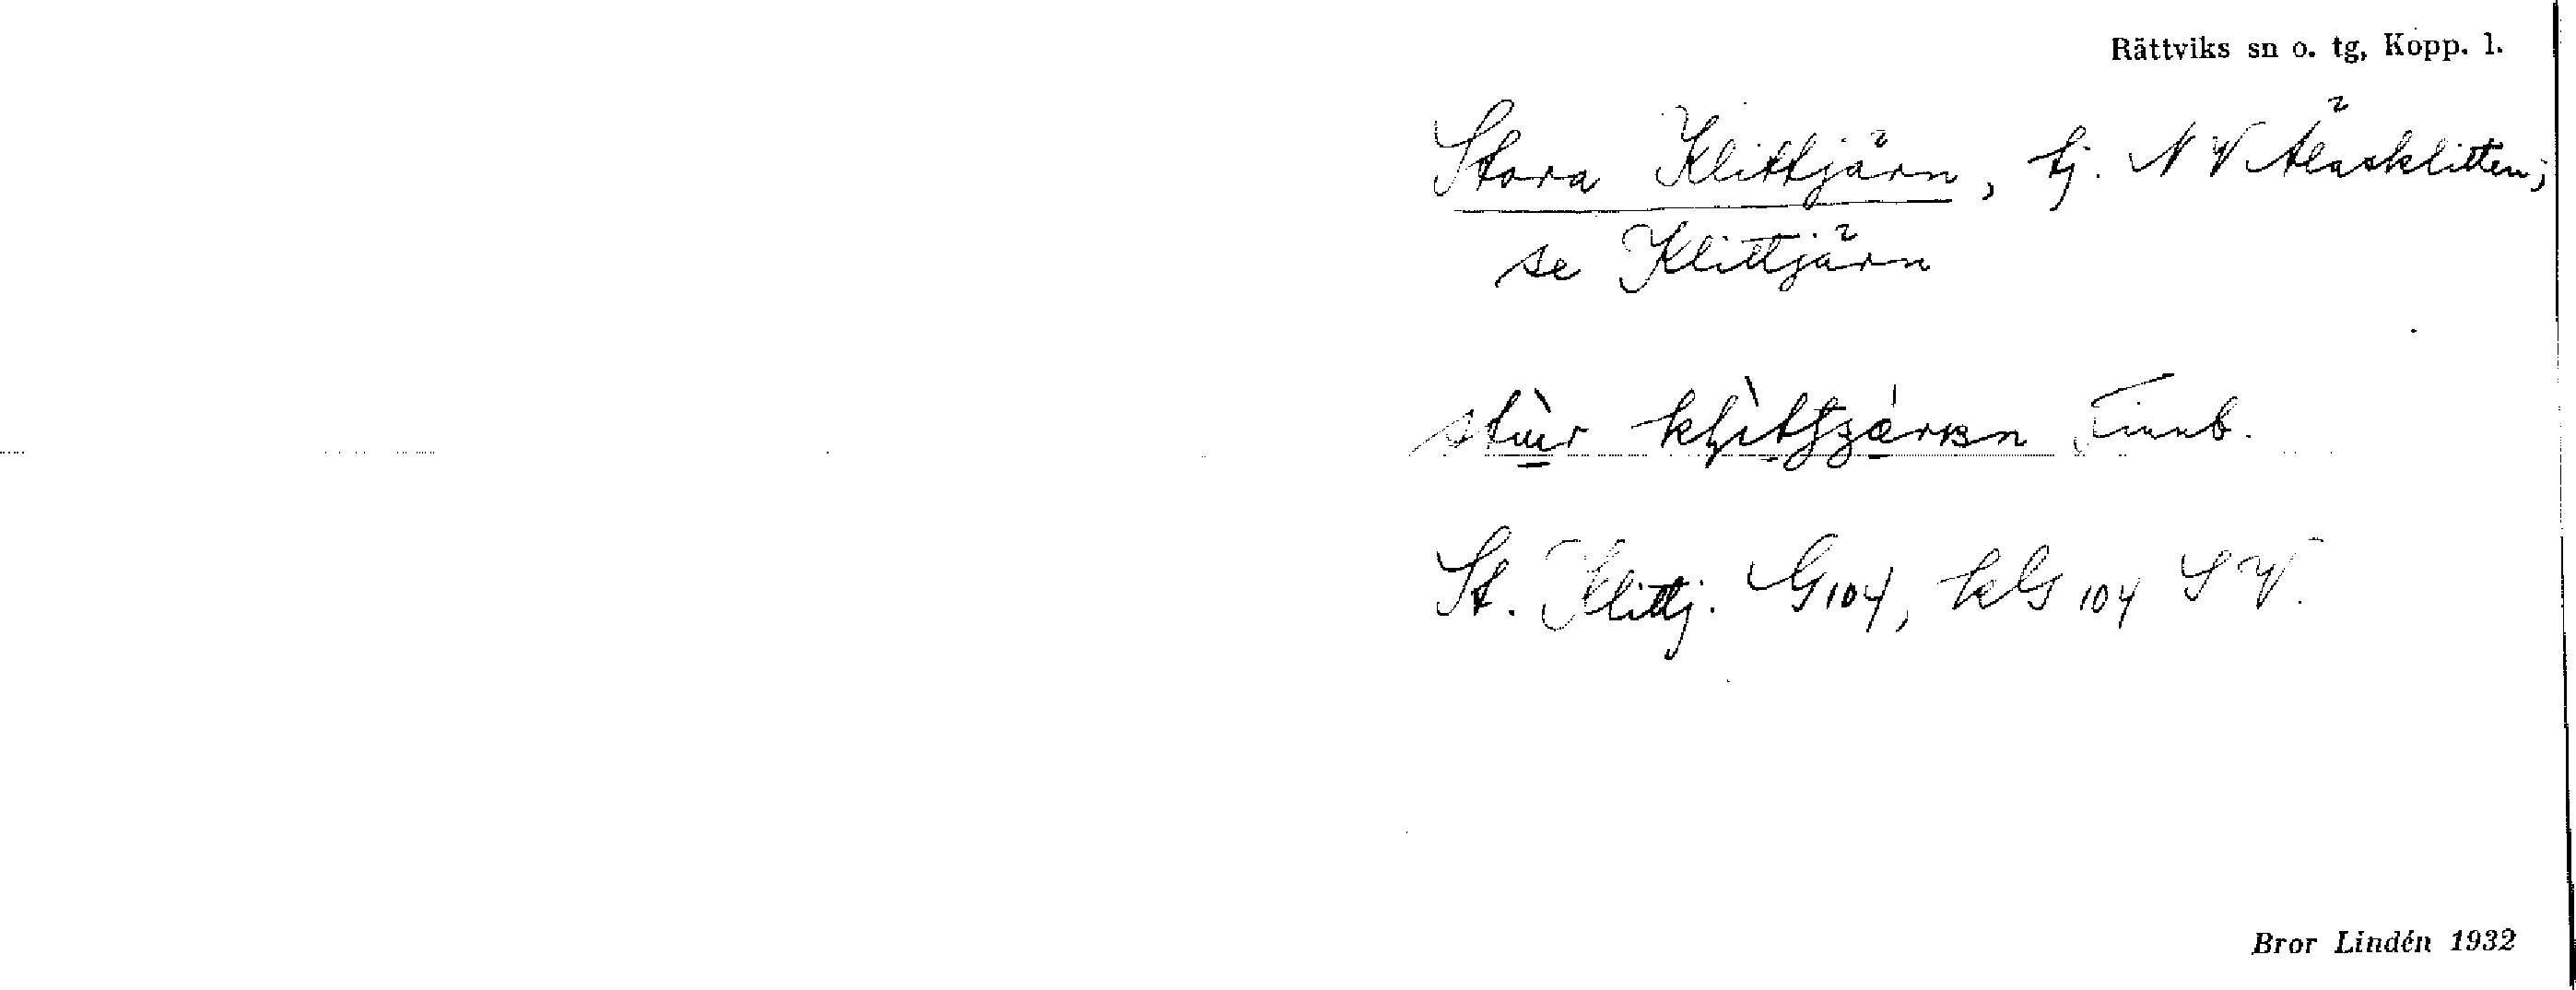 Rättviks sn o. tg, Kopp. l.
Stora Klittjärn, tj. NV Älasklitten;
se Klittjärn
Finnb.
St. Klittj. G104, kG 104 SV.
Bror Lindén 1932